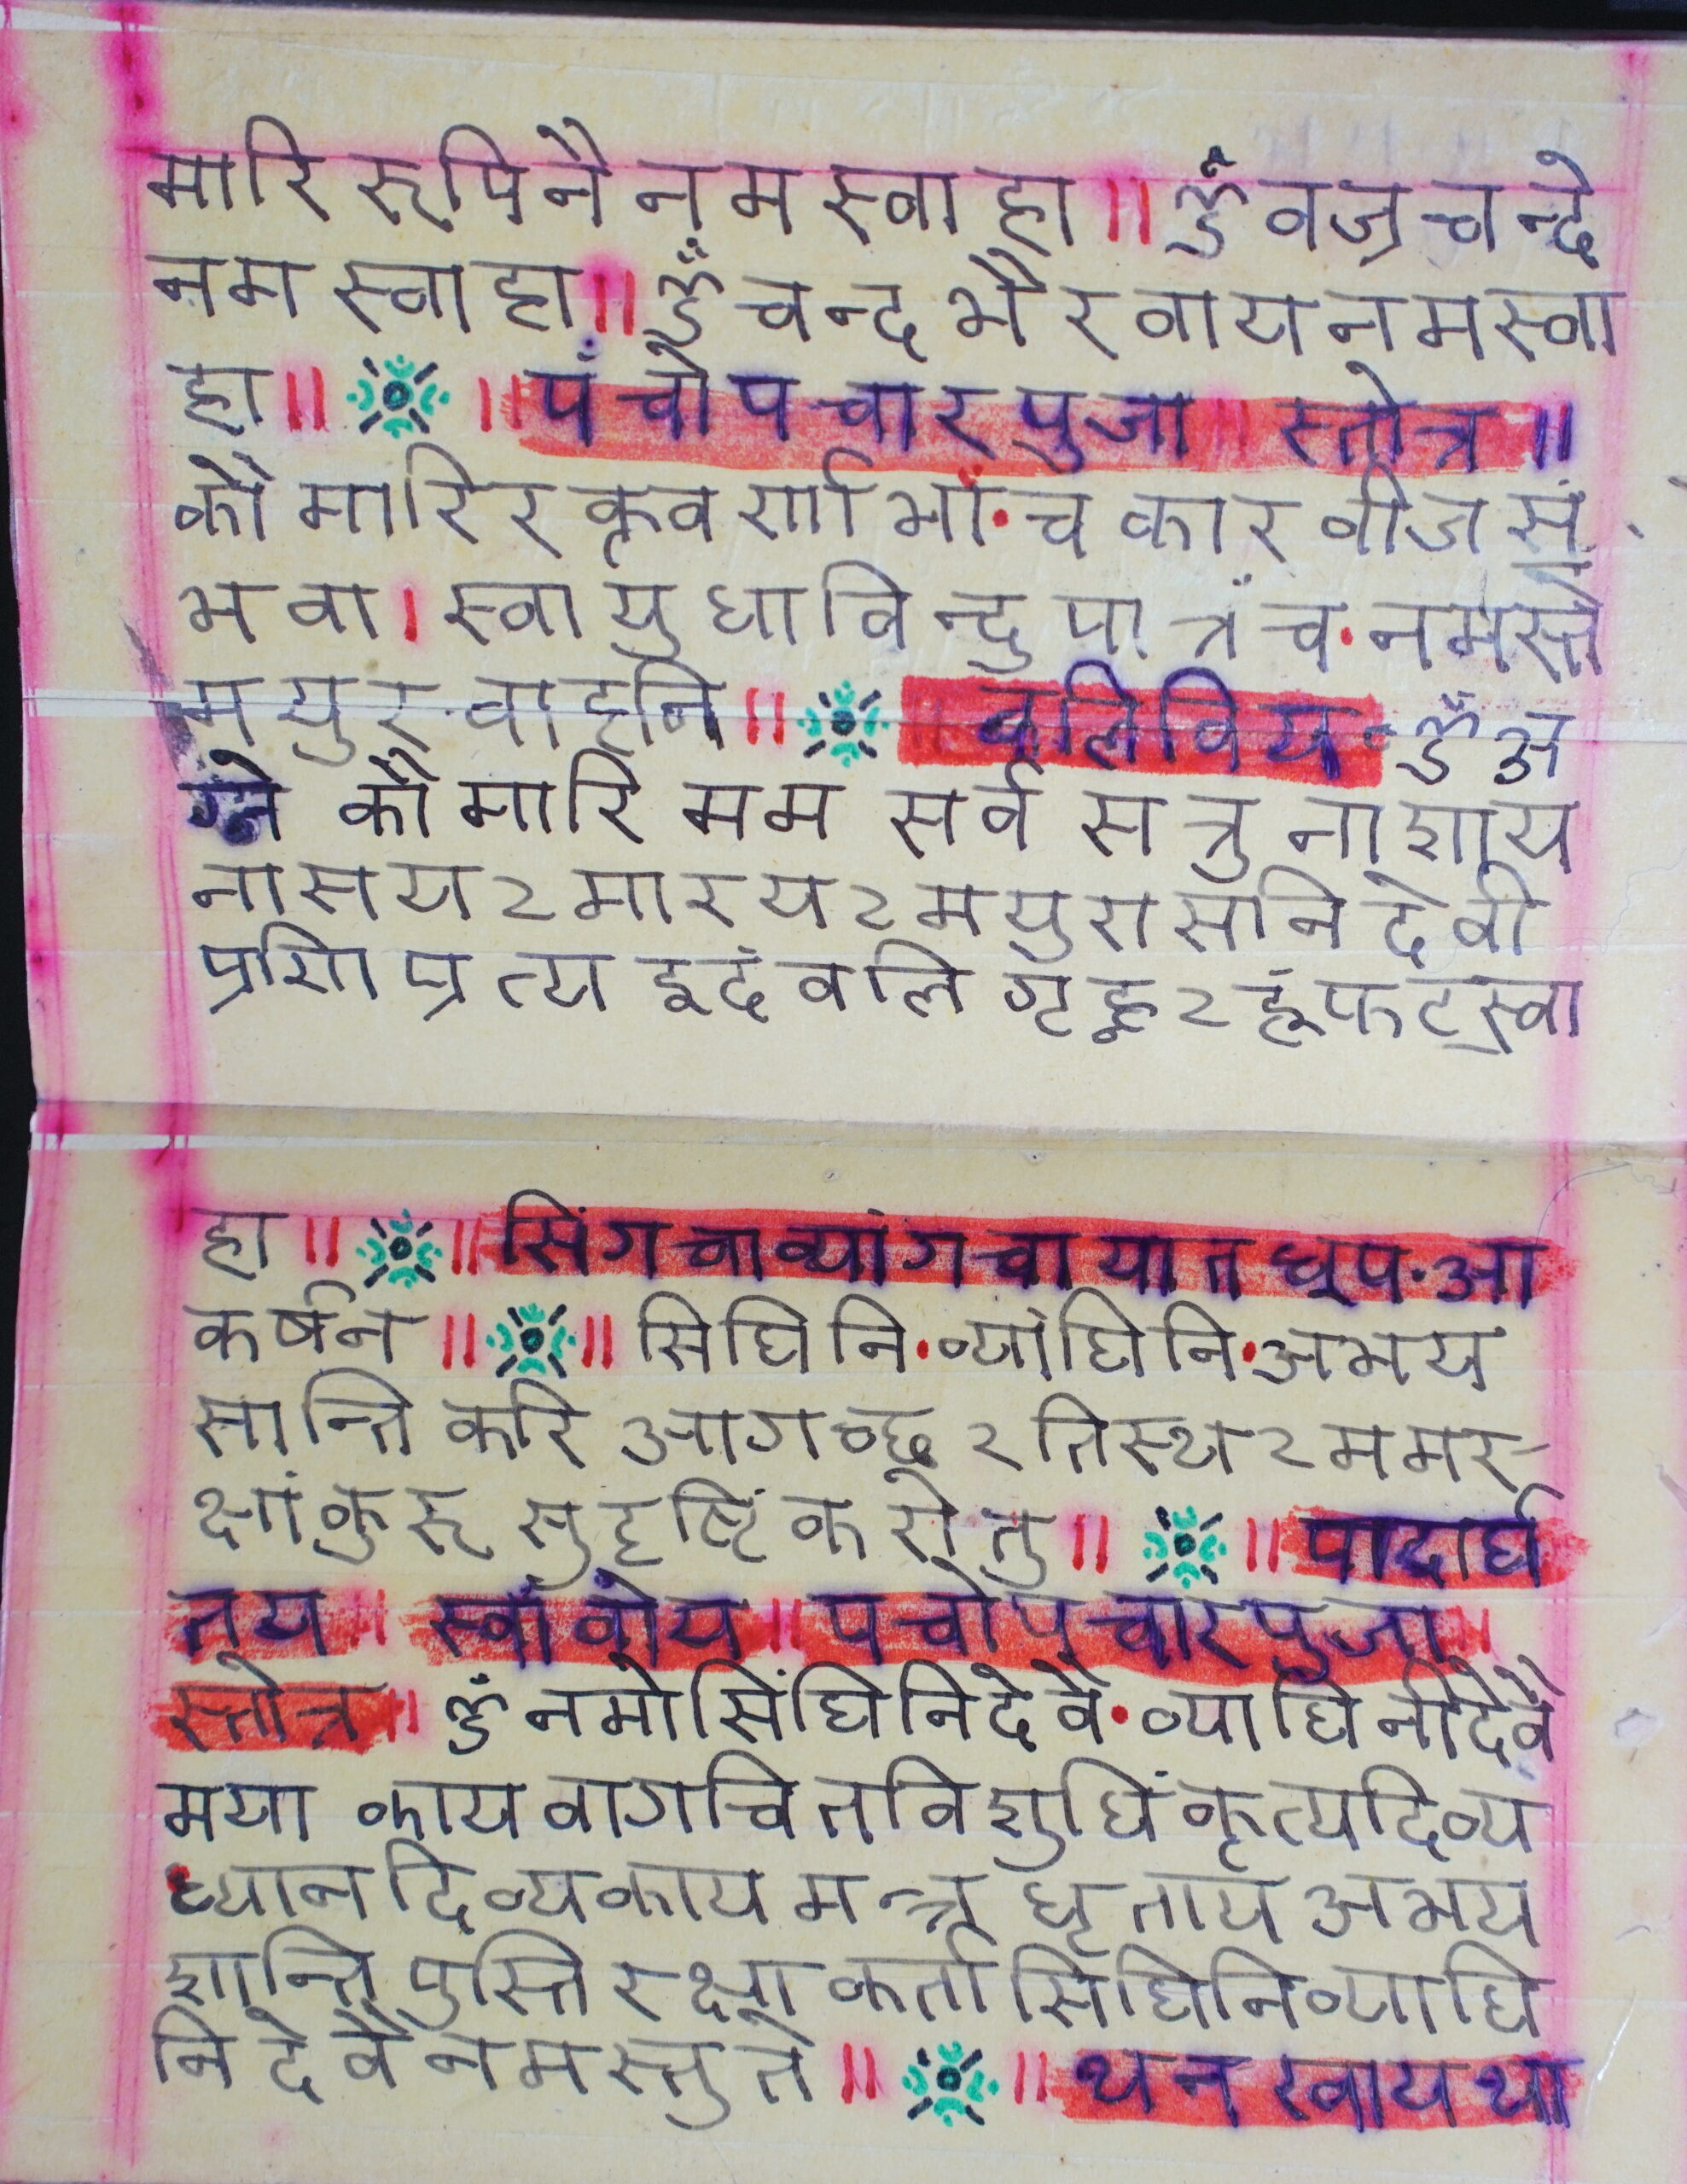 मारि रूपिनै नम स्वाहा ॥ ॐ वज्र चन्दे
नम स्वाहा ॥ ॐ चन्द भैरवाय नम स्वा
हा ॥ ॥ पंचोपचार पुजा ॥ स्तोत्र ॥
कौमारि रक्तवर्णाभां • चकार वीज सं
भवा । स्वायुधा विन्दु पात्रं च • नमस्ते
मयुर वाहनि ॥ ॥ वलिविय ॐ अ
ग्ने कौमारि मम सर्व सत्रु नाशाय
नासय २ मारय २ मयुरासनि देवी
प्रशिा प्रत्य इदं वलि गृह्न २ हूं फट् स्वा
हा ॥ ॥ सिंग चा व्यांग चा यात धूप • आ
कर्षन ॥ ॥ सिघिनि • व्यांघिनि • अभय
सान्ति करि आगच्छ २ तिस्थ २ मम र-
क्षां कुरु सुदृष्टिं करोतु ॥ ॥ पादार्घ
तय ॥ स्वांवोय ॥ पचोपचार पुजा ॥
स्तोत्र ॥ ॐ नमो सिंघिनि देवै • व्याघिनी देवै
मया काय वाग चित विशुधिं कृत्य दिव्य
ध्यान दिव्य काय मन्त्र घृताय अभय
शान्ति पुस्ति रक्षा कर्ता सिघिनि व्याघि
नि देवै नमस्तुते ॥ ॥ थन खाय था